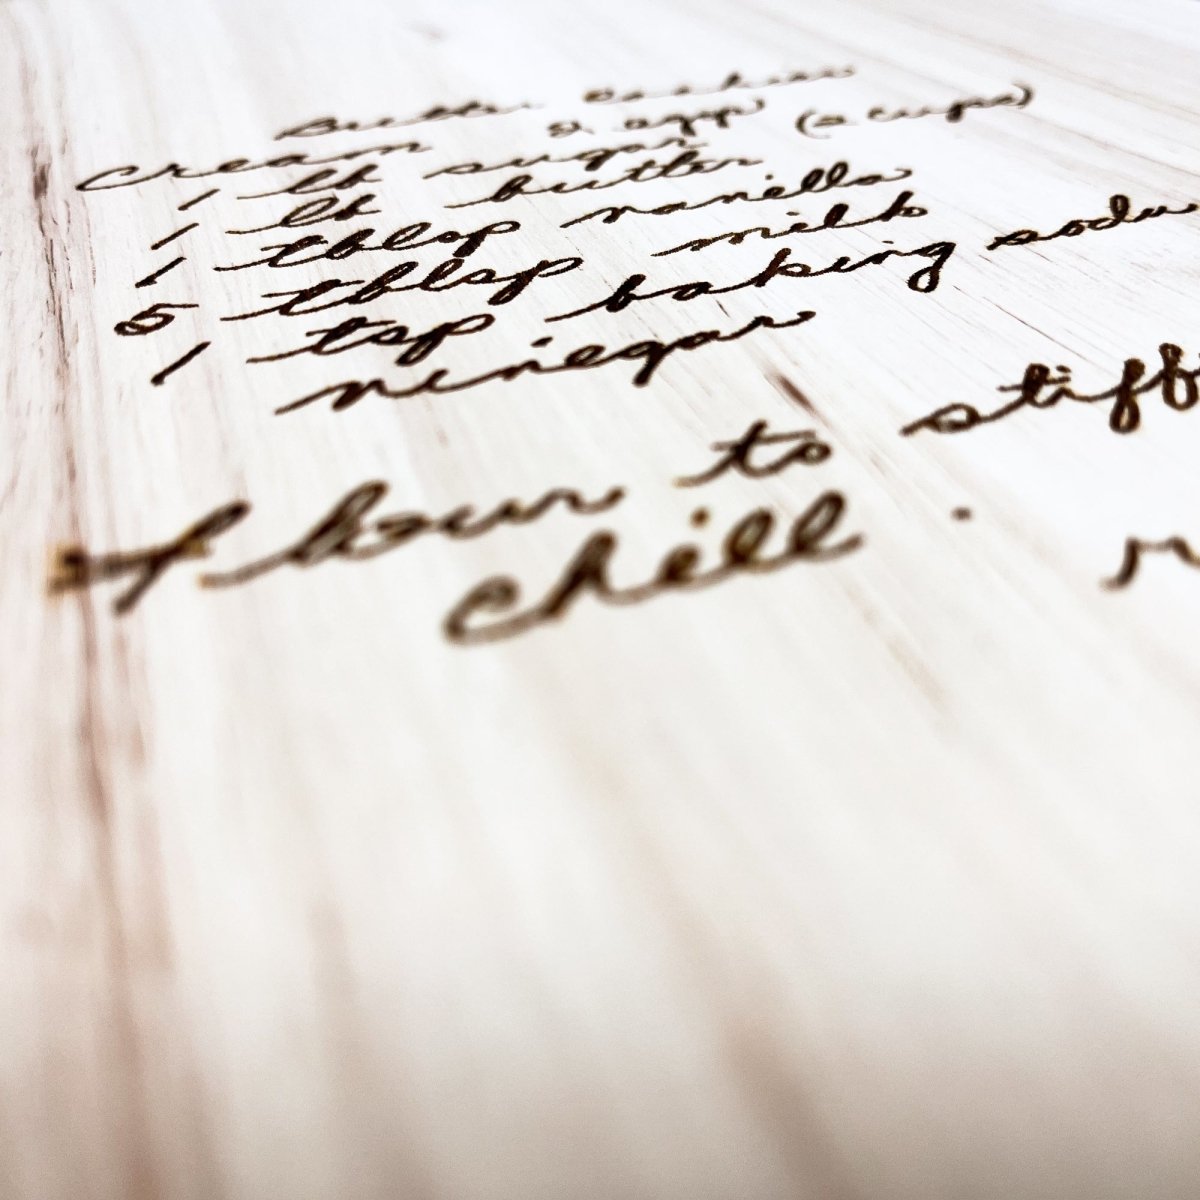 Butter Cookies
Cream 2 eggs
1 lb sugar (2 cups)
1 lb butter
1 tblsp vanilla
5 tblsp milk
1 tsp baking soda
vinegar
Flour to stiff
chill